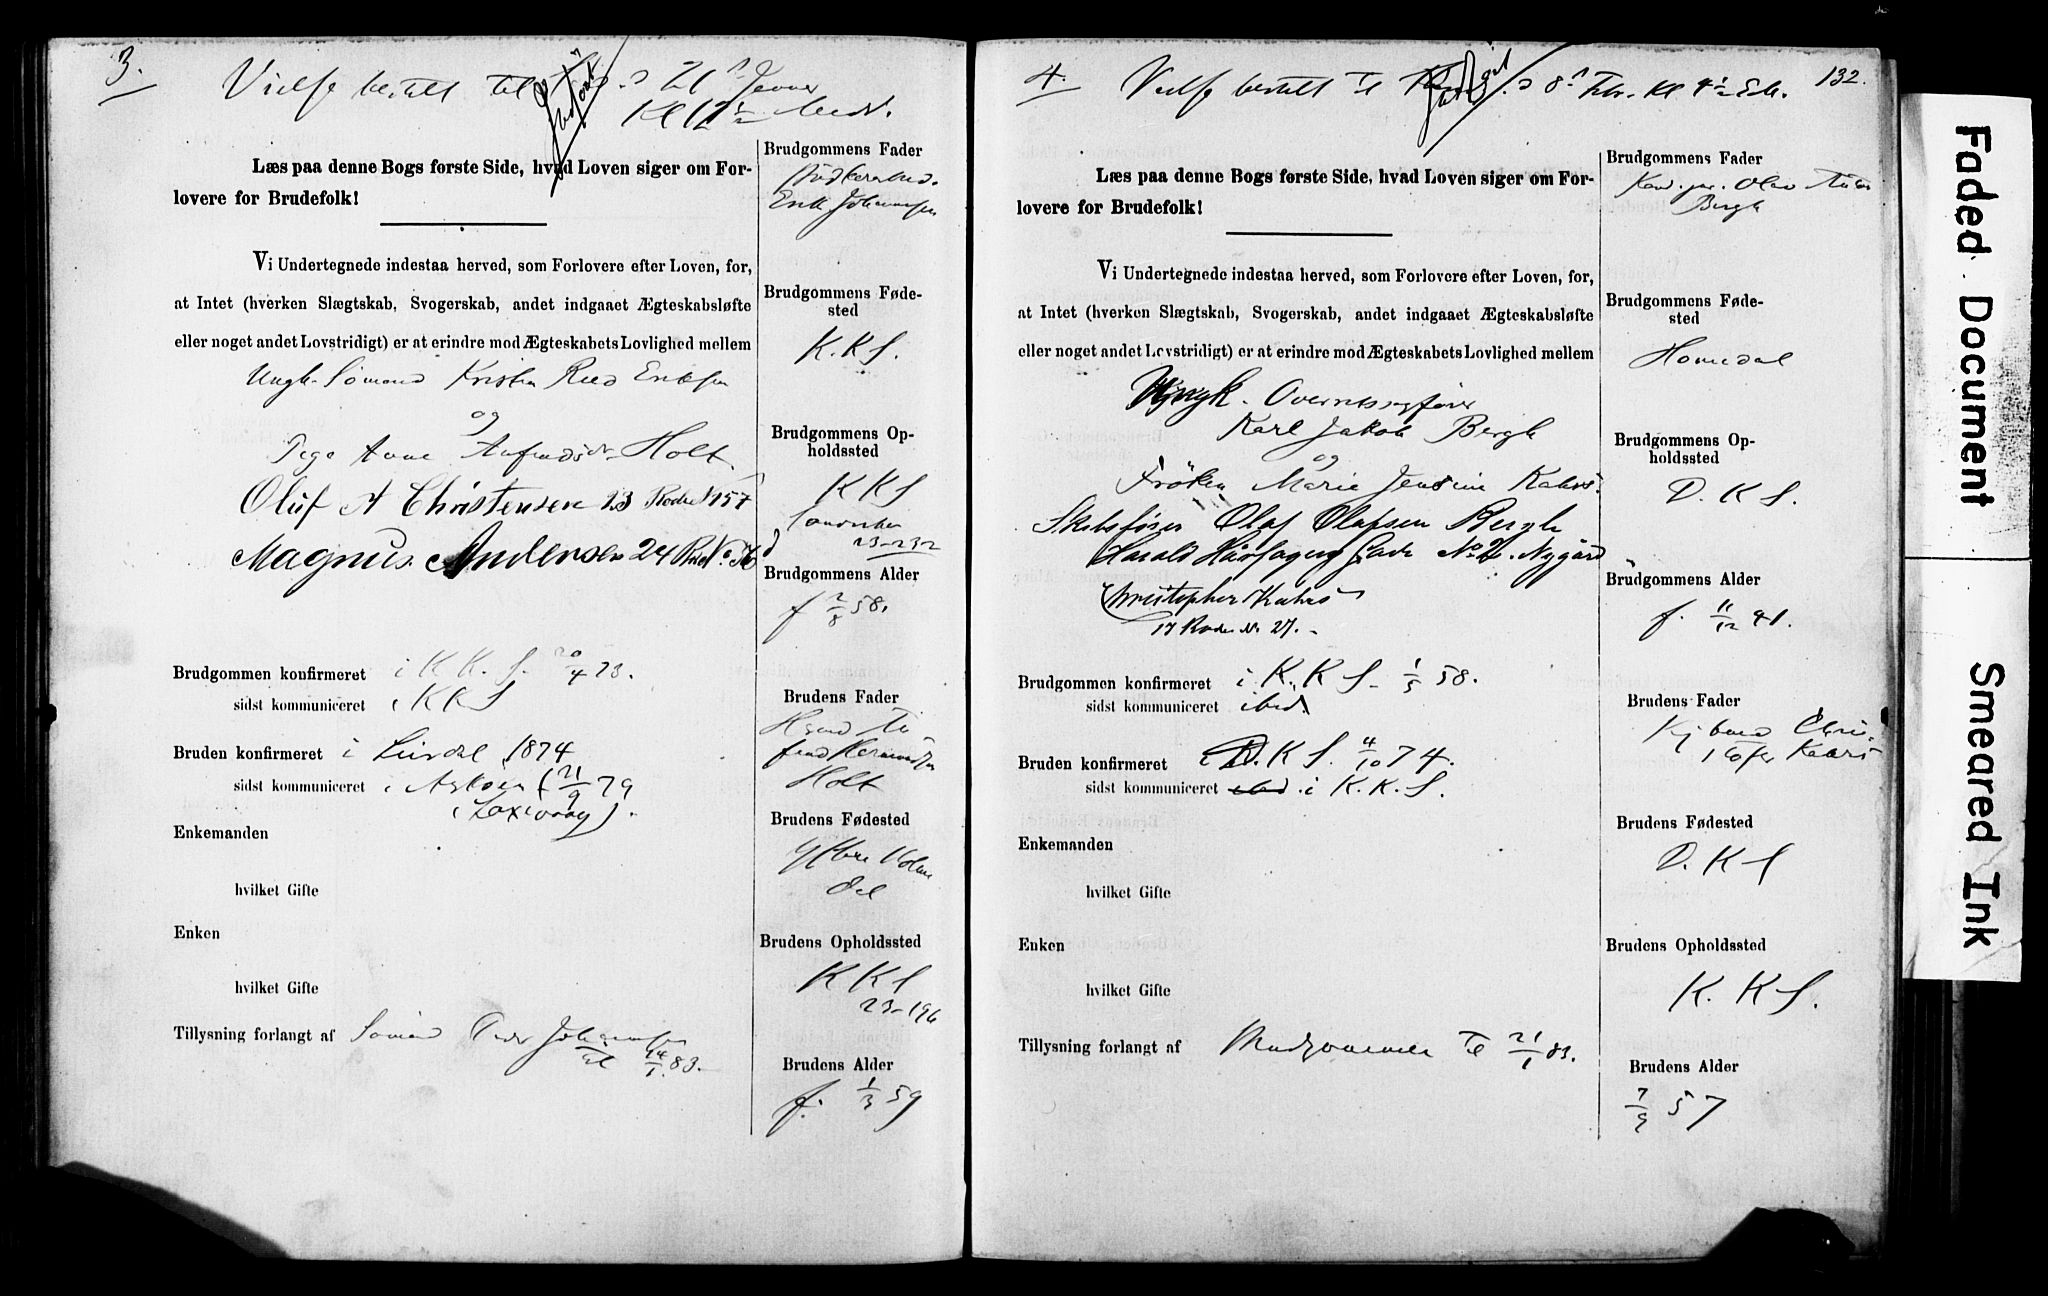 3.
Vielse bestilt til d 21 Januar
Kl 12 Medr.
Læs paa denne Bogs første Side, hvad Loven siger om For-
lovere for Brudefolk!
Vi Undertegnede indestaa herved, som Forlovere efter Loven, for,
at Intet (hverken Slægtskab, Svogerskab, andet indgaaet Ægteskabsløfte
eller noget andet Lovstridigt) er at erindre mod Ægteskabets Lovlighed mellem
Ungk. Sømand Kristian Eriksen
og
Pige Anne Holt
Oluf A Christensen 23 Rode N 157
Magnus Andersen 24 Rode No.
Brudgommen konfirmeret i K. K. S. 20/4 73.
sidst kommuniceret i K K S
Bruden konfirmeret i Lindal 1874
sidst kommuniceret i Askøen 21/9 79
(Laxevaag).
Enkemanden
hvilket Gifte
Enken
hvilket Gifte
Tillysning forlangt af Sømand Peder Johannesen
til 14/1 83.
Brudgommens Fader
Erik Johannesen
Brudgommens Føde-
sted
K. K S.
Brudgommens Op-
holdssted
K K S
23-232
Brudgommens Alder
f 2/8 58.
Brudens Fader
Holt
Brudens Fødested
Brudens Opholdssted
K K S
23-196
Brudens Alder
f. 1/3 59
4.
Vielse bestilt til d 8 Febr. Kl 4½ Eft.
132.
Læs paa denne Bogs første Side, hvad Loven siger om For-
lovere for Brudefolk!
Vi Undertegnede indestaa herved, som Forlovere efter Loven, for,
at Intet (hverken Slægtskab, Svogerskab, andet indgaaet Ægteskabsløfte
eller noget andet Lovstridigt) er at erindre mod Ægteskabets Lovlighed mellem
Ungk. Overretssagfører
Karl Jakob Bergh
og
Frøken Marie Jensine Kahrs.
Skibsfører Olaf Olafsen Bergh
Harald Haarfagers Gade No 2. Nygård
Christopher Kahrs
17 Rode No 27.
Brudgommen konfirmeret i K. K S. 1/5 58.
sidst kommuniceret ibid.
Bruden konfirmeret i D. K S. 4/10 74.
sidst kommuniceret ibid. i K. K. S.
Enkemanden
hvilket Gifte
Enken
hvilket Gifte
Tillysning forlangt af Brudgommen til 21/1 83.
Brudgommens Fader
Kand. jur. Olav
Bergh
Brudgommens Føde-
sted
Homedal
Brudgommens Op-
holdssted
D. K S.
Brudgommens Alder
f. 11/12 41.
Brudens Fader
Kjbmd Chri-
stofer Kahrs
Brudens Fødested
D. K S
Brudens Opholdssted
K. K S.
Brudens Alder
7/9 57
Faded Document
Smeared Ink